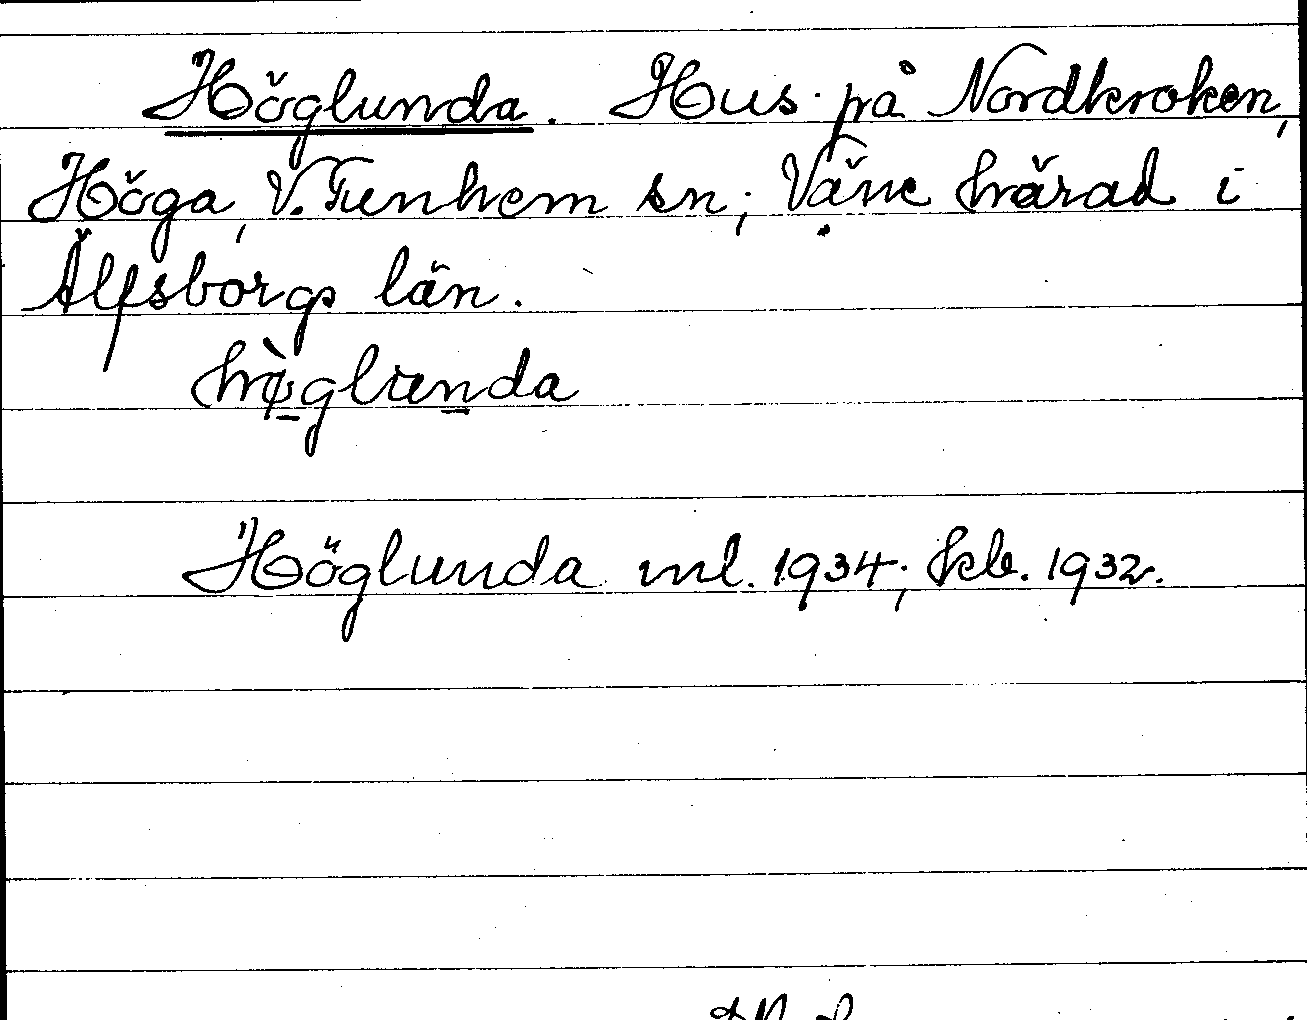 Höglunda. Hus på Nordkroken,
Höga, V. Tunhem sn; Väne härad i
Älfsborgs län.
hø̀glunda
Höglunda ml. 1934; kb. 1932.